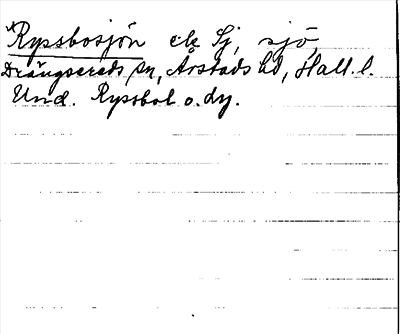 Ryssbosjön ek Sj, sjö,
Drängsereds sn, Årstads hd, Hall. l.
Und. Ryssbol o. dy.